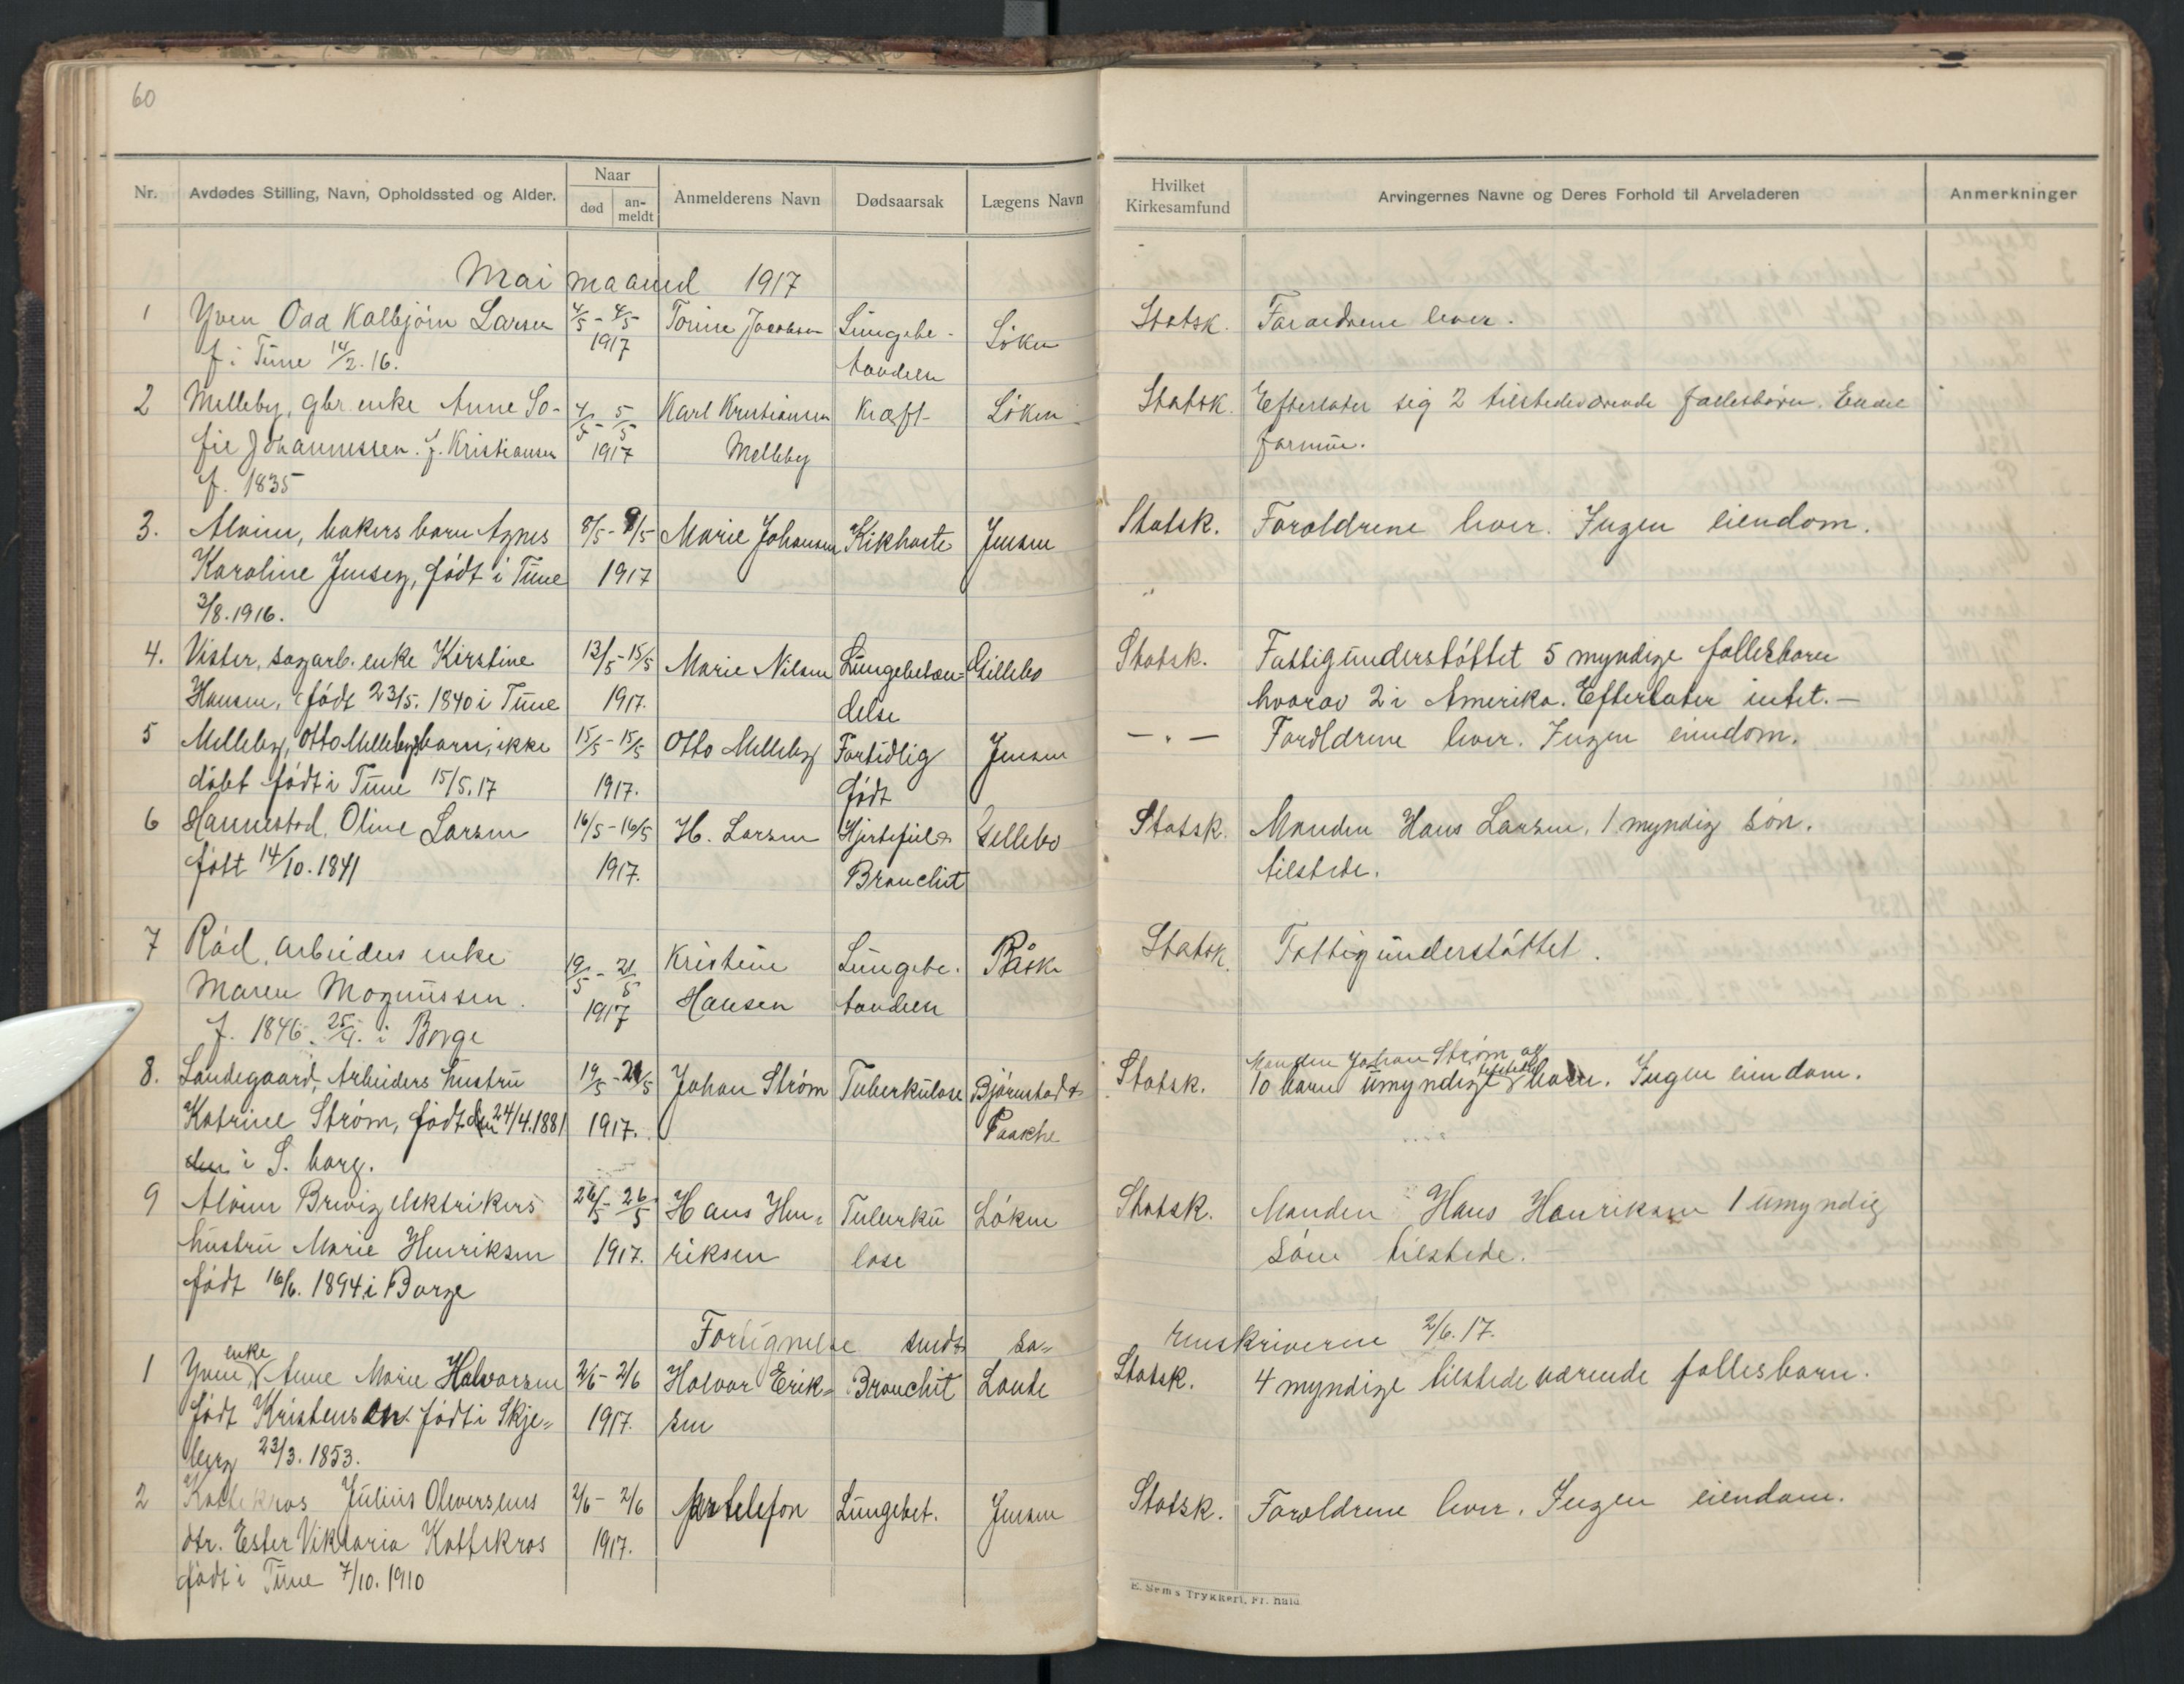 60
Nr. Avdødes Stilling, Navn, Opholdssted og Alder. Naar død anmeldt Anmelderens Navn Dødsaarsak Lægens Navn Hvilket Kirkesamfund Arvingernes Navne og Deres Forhold til Arveladeren Anmerkninger
Mai maaned 1917
1 Yven Odd Kolbjørn Larsen 4/5 - 4/5 Torine Jacobsen Lungebe- Løken Statsk. Foraeldrene lever.
f. i Tune 14/2. 16. 1917 tændelse
2 Melleby, gbr. enke Anne So- 4/5 - 5/5 Karl Kristiansen Kræft Løken Statsk. Efterlater sig 2 tilstedeværende fællesbørn. Endel
fie Johannessen. f. Kristiansen 1917 Melleby formue.
f. 1835
3. Alvim, bakers barn Agnes 8/5 - 9/5 Marie Johansen Kikhoste Jensen Statsk. Forældrene lever. Ingen eiendom.
Karoline Jensen, født i Tune 1917
3/8. 1916.
4. Vister, sagarb. enke Kirstine 13/5 - 15/5 Marie Nilsen Lungebetæn= Gillebo Statsk. Fattigunderstøttet 5 myndige fællesbarn
Hansen, født 23/5. 1840 i Tune 1917. delse hvorav 2 i Amerika. Efterlater intet. —
5 Melleby, Otto Mellebys barn, ikke 15/5 - 15/5 Otto Melleby Fortidlig Jensen — " — Forældrene lever. Ingen eiendom.
døbt født i Tune 15/5. 17 1917. født
6 Hannestad, Oline Larsen 16/5 - 16/5 H. Larsen Hjertefeil & Gillebo Statsk. Manden Hans Larsen, 1 myndig søn.
født 14/10. 1841 1917. Bronchit tilstede.
7 Rød, arbeiders enke 19/5 - 21/5 Kristine Lungebe- Påske Statsk. Fattigunderstøttet.
Maren Magnussen. 1917 Hansen tændelse
f. 1846. 25/4. i Borge
8. Landegaard, Arbeiders hustru 19/5 - 21/5 Johan Strøm Tuberkulose Bjørnstad & Statsk. Manden Johan Strøm og
10 barn umyndige tilstede barn. Ingen eiendom.
Katrine Strøm, født den 24/4. 1881 1917. Paaske
den i S. borg.
9 Alvim Brevig elektrikers 26/5 - 26/5 Hans Hen= Tuberku Løken Statsk. Manden Hans Henriksen 1 umyndig
hustru Marie Henriksen 1917. riksen lose søn tilstede.
født 16/6. 1894 i Borge
Fortegnelse sendt so= renskriveren 2/6. 17.
1 Yven, enke Anne Marie Halvorsen 2/6 - 2/6 Halvor Erik= Bronchit Lande Statsk. 4 myndige tilstedeværende fællesbarn.
født Kristensen. født i Skje= 1917. sen
berg 23/3. 1853.
2 Kattekras Julius Oliversens 2/6 - 2/6 pr telefon Lungebet. Jensen Statsk. Forældrene lever. Ingen eiendom.
dtr. Ester Viktoria Kattekras 1917.
født i Tune 7/10. 1910
E. Sem's Trykkeri, Fr. hald